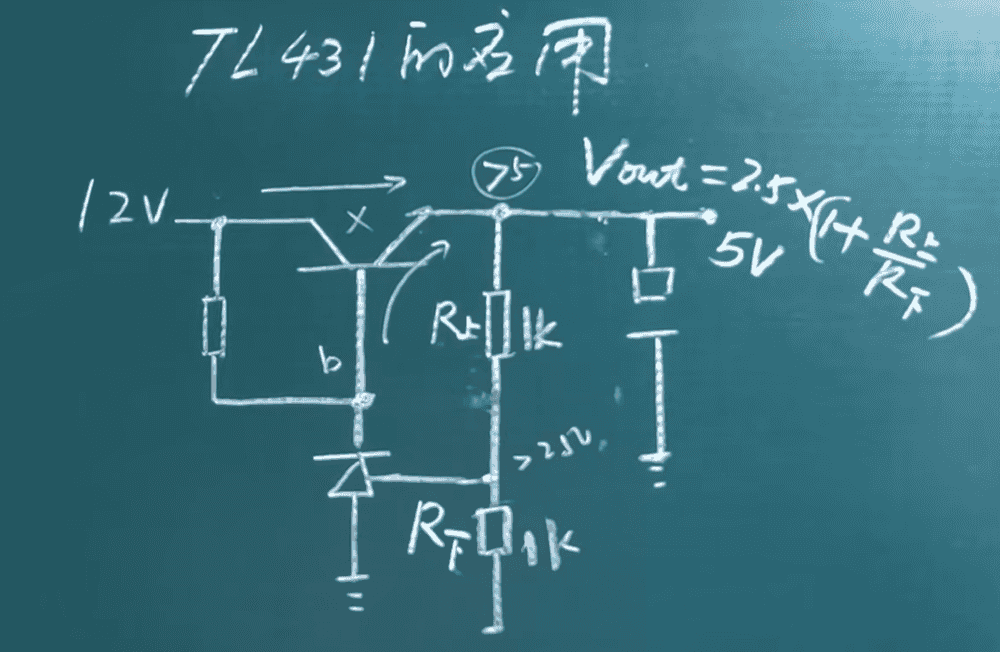 TL431的应用
12V
x
>5
Vout=2.5×(1+R上/R下)
5V
R上 1K
b
>2.5V
R下 1K